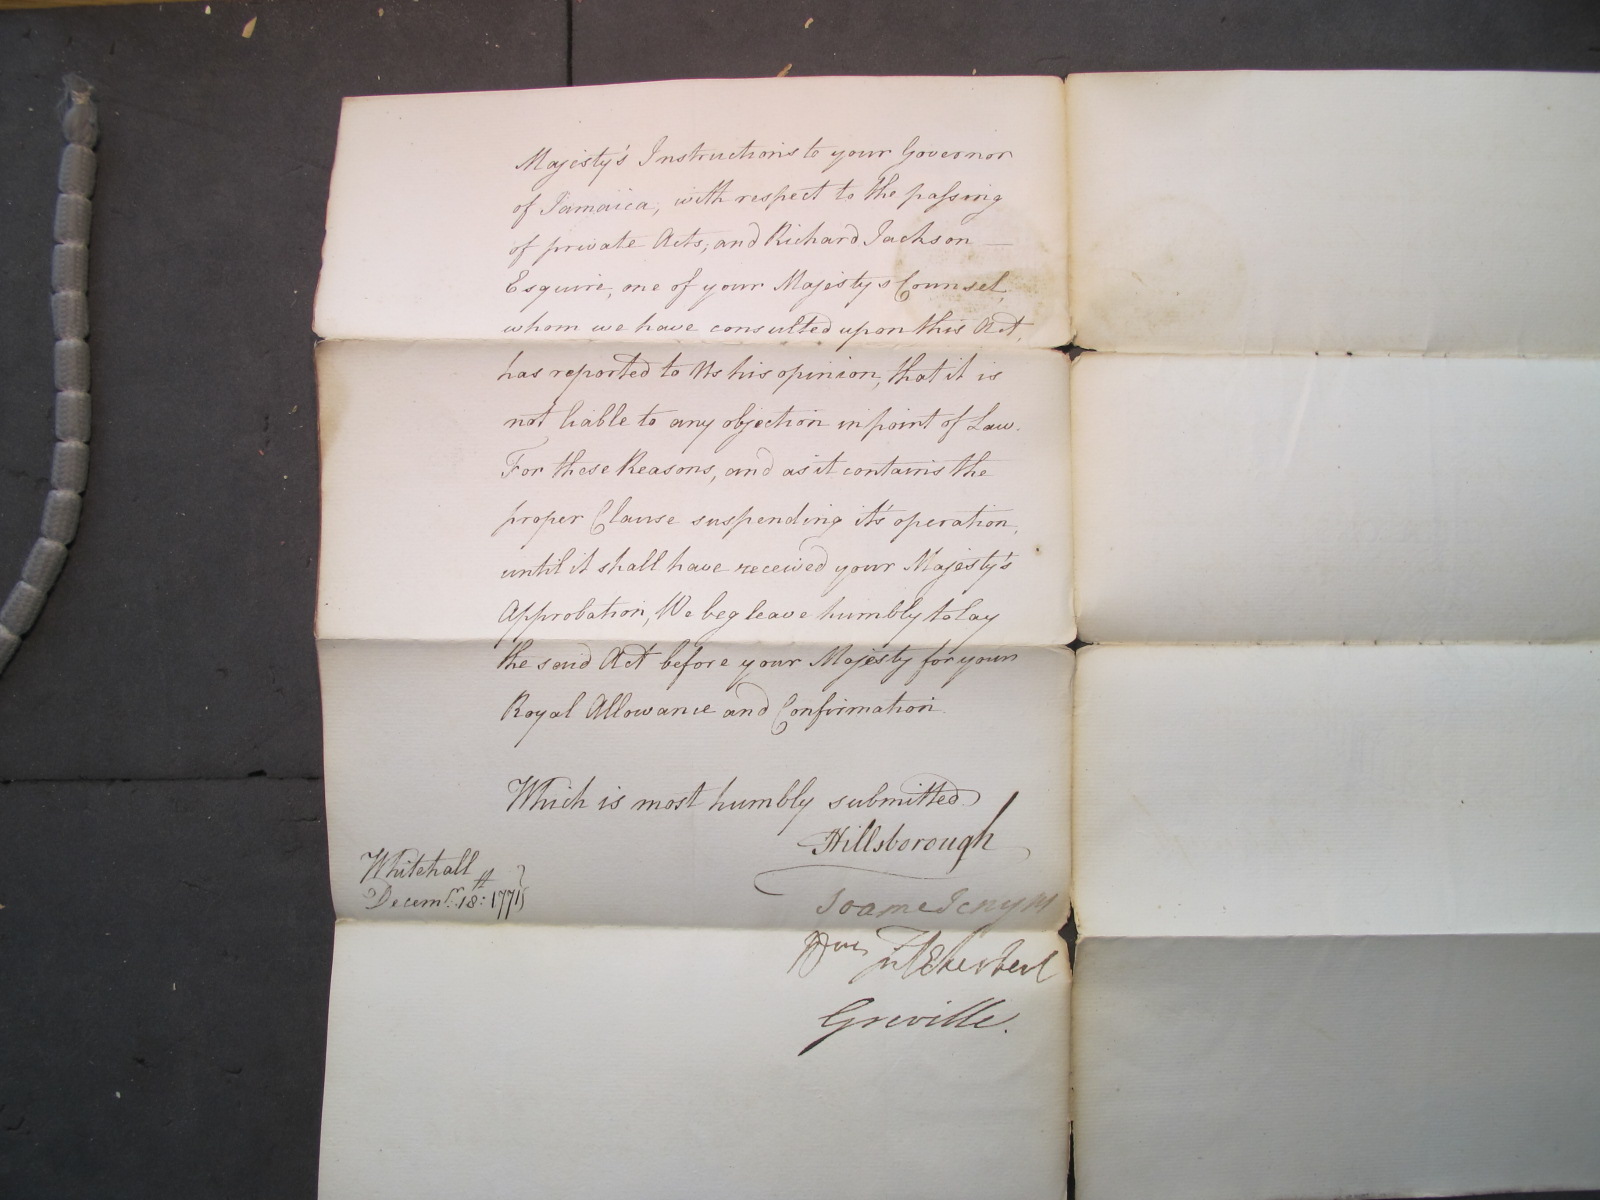 Majesty's Instructions to your Governor
of Jamaica, with respect to the paſsing
of private Acts; and Richard Jackson —
Esquire, one of your Majesty's Counsel,
whom we have consulted upon this Act,
has reported to Us his opinion, that it is
not liable to any objection in point of Law.
For these Reasons, and as it contains the
proper Clause suspending it's operation,
until it shall have received your Majesty's
Approbation, We beg leave humbly to lay
the said Act before your Majesty for your
Royal Allowance and Confirmation.
Which is most humbly submitted
Hillsborough
Whitehall
Decemr. 18th: 1771
Soame Jenyns
Wm Fitzherbert
Greville.